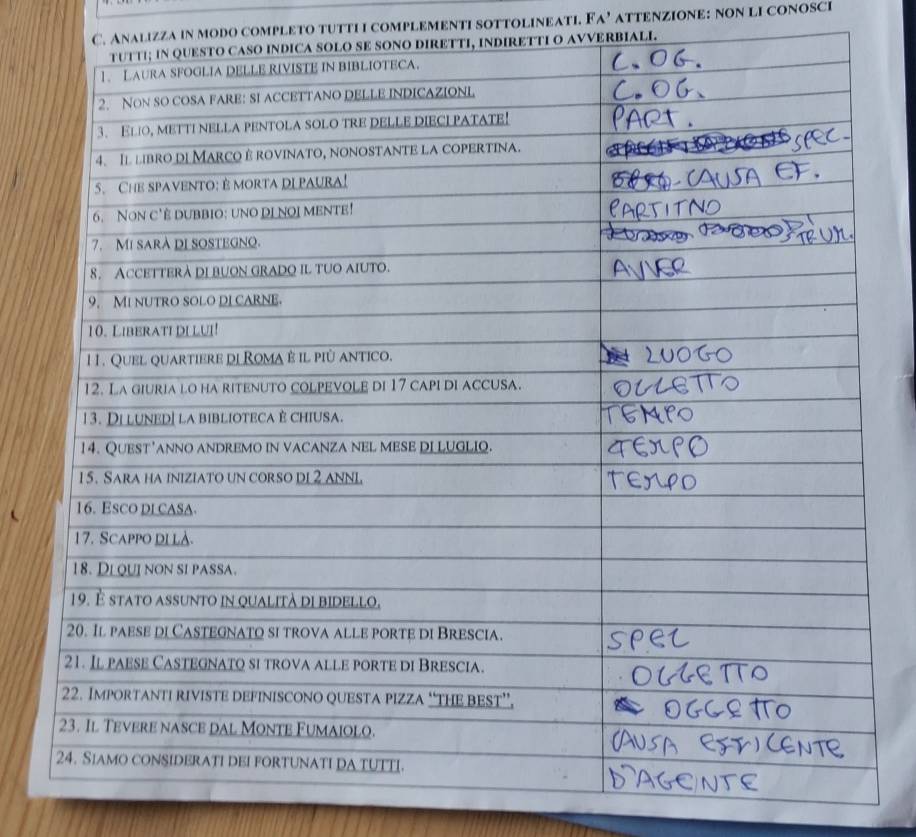 C. Analizza in modo completo tutti i complementi sottolineati. Fa' attenzione: non li conosci
tutti; in questo caso indica solo se sono diretti, indiretti o avverbiali.
1. Laura sfoglia delle riviste in biblioteca. C. OG.
2. Non so cosa fare: si accettano delle indicazioni. C. OG.
3. Elio, metti nella pentola solo tre delle dieci patate! PART.
4. Il libro di Marco è rovinato, nonostante la copertina. SPEC.
5. Che spavento: è morta di paura! CAUSA EF.
6. Non c'è dubbio: uno di noi mente! PARTITNO
7. Mi sarà di sostegno.
8. Accetterà di buon grado il tuo aiuto. AVVER
9. Mi nutro solo di carne.
10. Liberati di lui!
11. Quel quartiere di Roma è il più antico. LUOGO
12. La giuria lo ha ritenuto colpevole di 17 capi di accusa. OGGETTO
13. Di lunedì la biblioteca è chiusa. TEMPO
14. Quest'anno andremo in vacanza nel mese di luglio. TEMPO
15. Sara ha iniziato un corso di 2 anni. TEMPO
16. Esco di casa.
17. Scappo di là.
18. Di qui non si passa.
19. È stato assunto in qualità di bidello.
20. Il paese di Castegnato si trova alle porte di Brescia. SPEC
21. Il paese Castegnato si trova alle porte di Brescia. OGGETTO
22. Importanti riviste definiscono questa pizza "the best". OGGETTO
23. Il Tevere nasce dal Monte Fumaiolo. CAUSA EFFICENTE
24. Siamo considerati dei fortunati da tutti. D'AGENTE